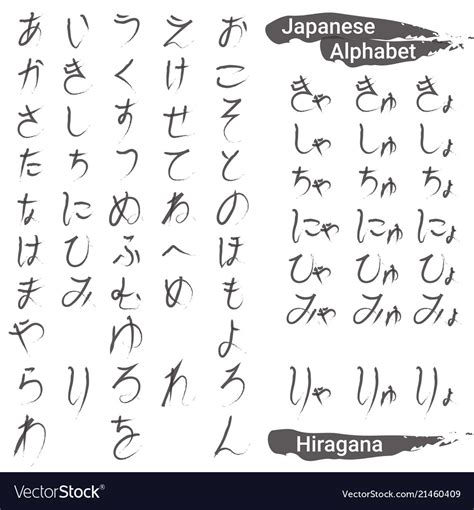 あ い う え お
か き く け こ
さ し す せ そ
た ち つ て と
な に ぬ ね の
は ひ ふ へ ほ
ま み む め も
や ゆ よ
ら り る れ ろ
わ を ん
Japanese
Alphabet
きゃ きゅ きょ
しゃ しゅ しょ
ちゃ ちゅ ちょ
にゃ にゅ にょ
ひゃ ひゅ ひょ
みゃ みゅ みょ
りゃ りゅ りょ
Hiragana
VectorStock®
VectorStock.com/21460409